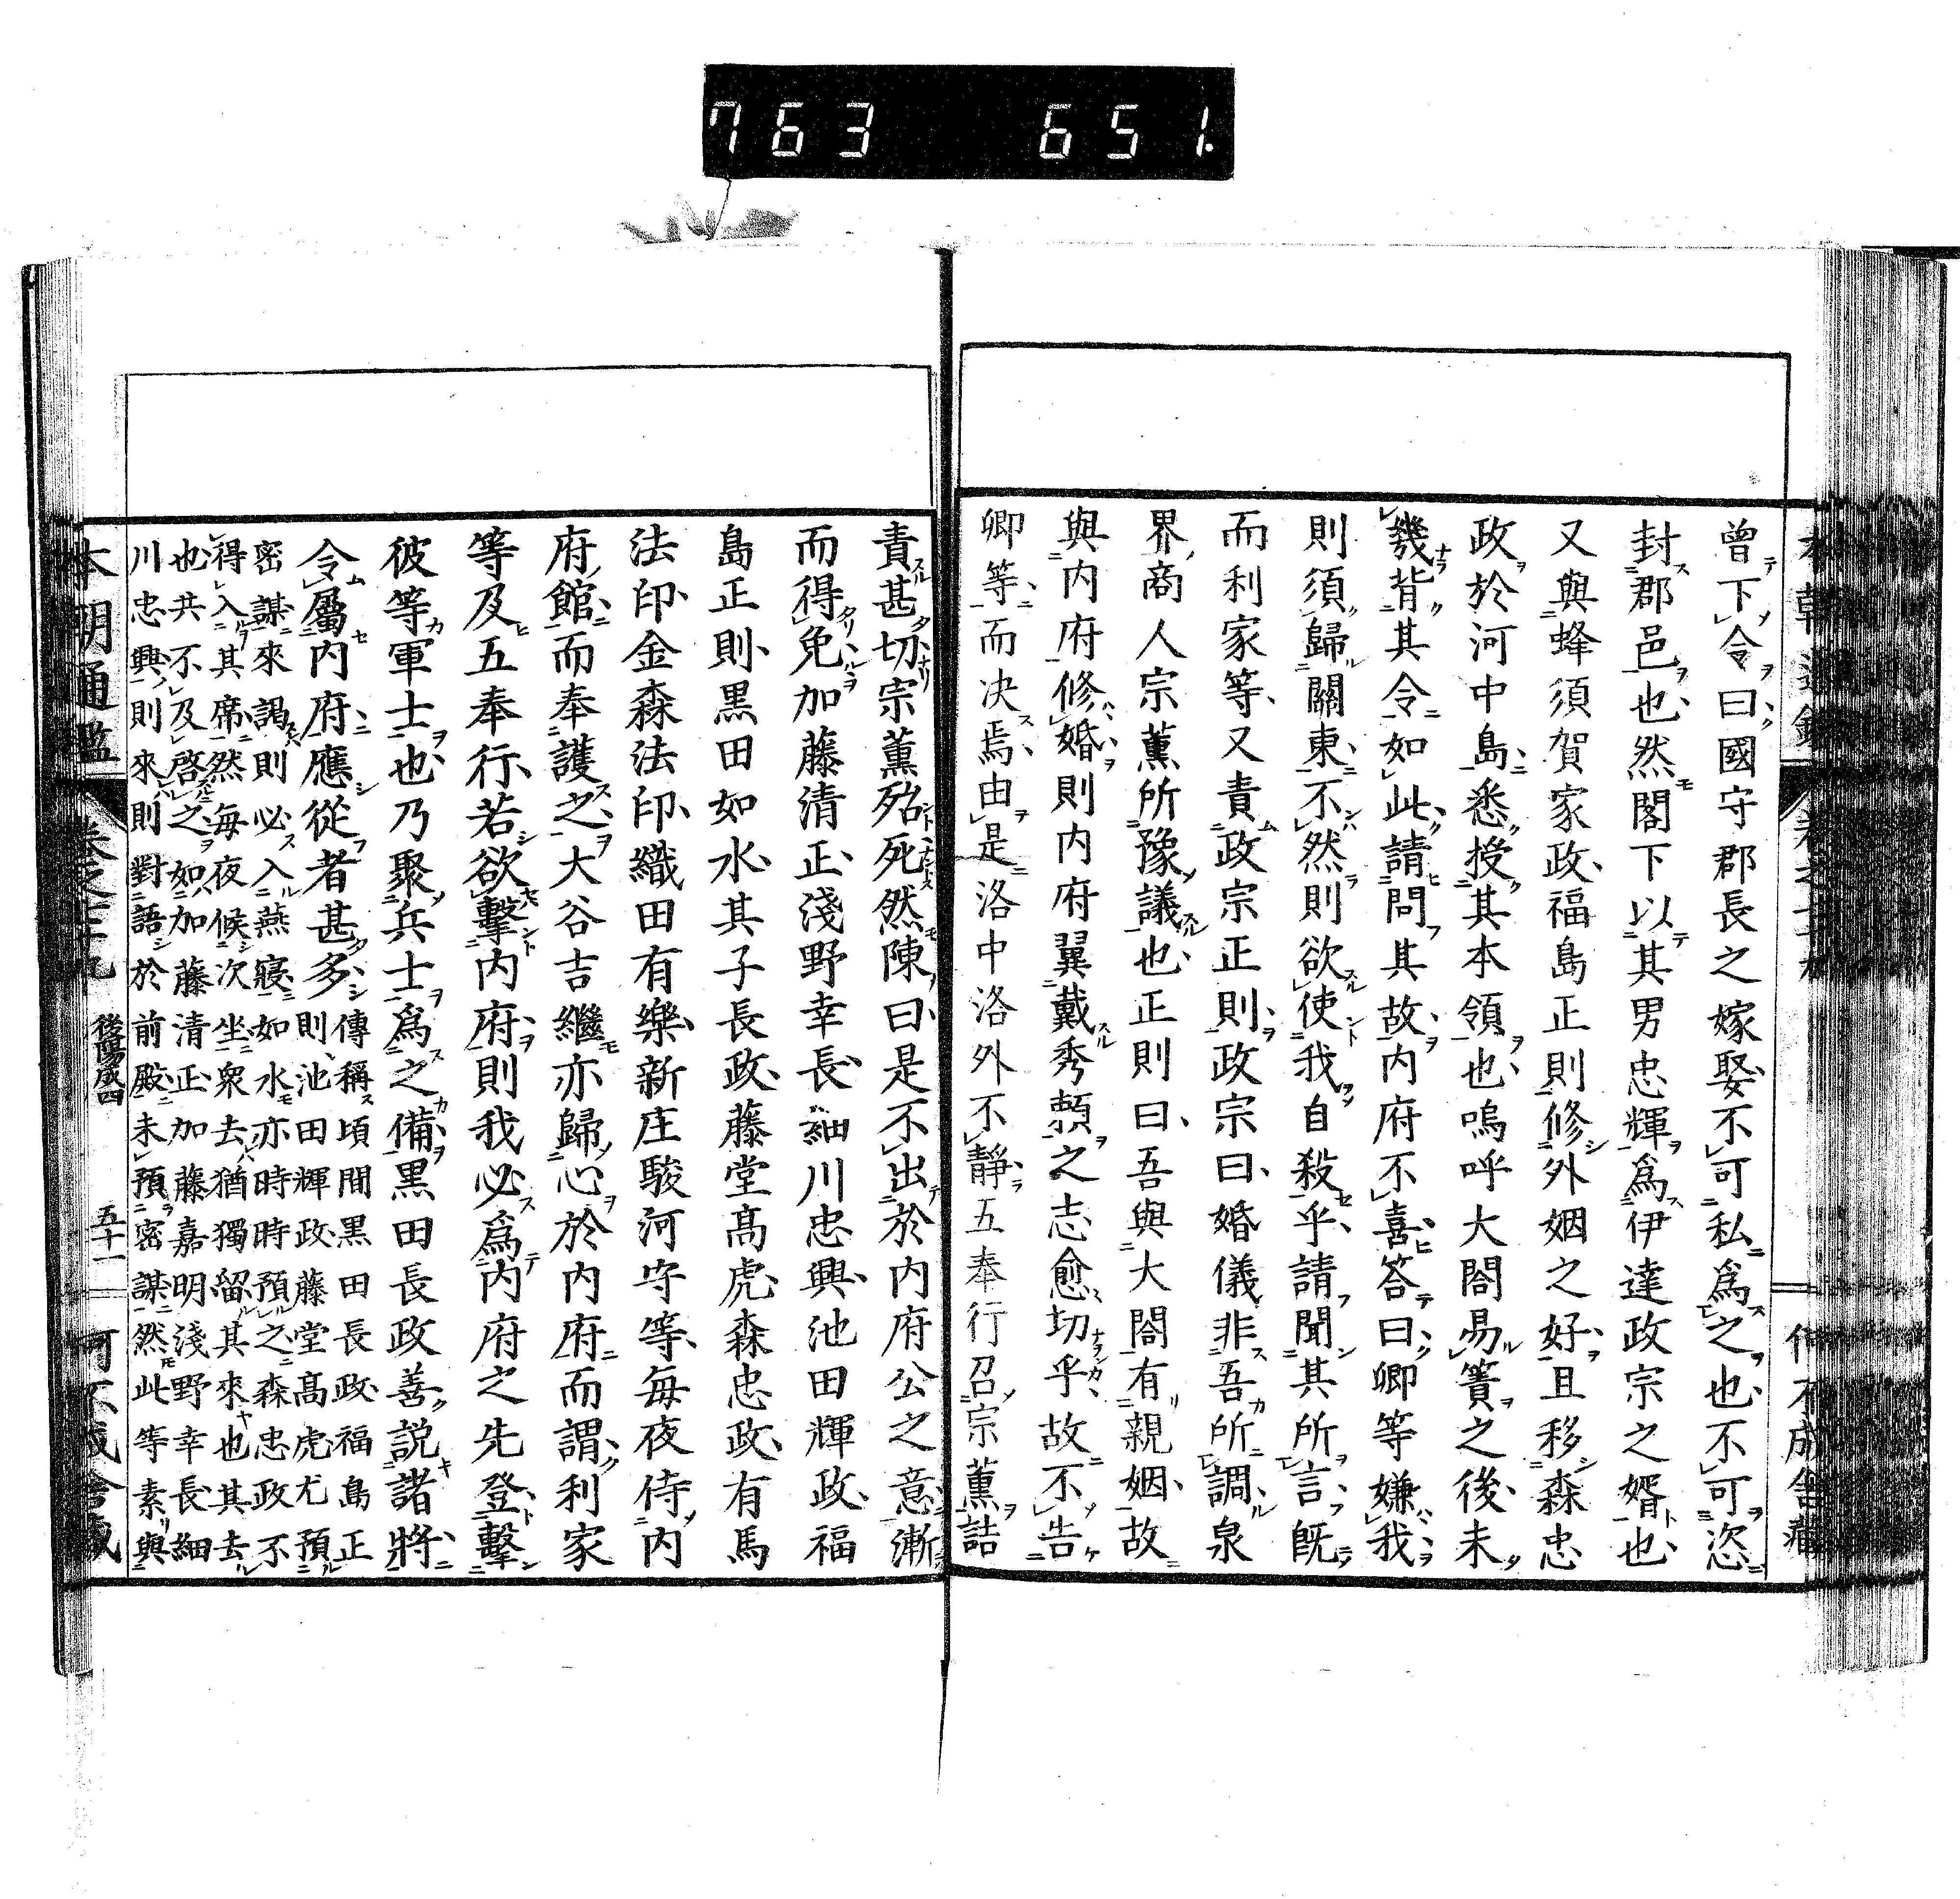 763 651.
曾下令曰國守郡長之嫁娶不可私爲之也不可恣
封郡邑也然閤下以其男忠輝爲伊達政宗之婿也
又與蜂須賀家政福島正則修外姻之好且移森忠
政於河中島悉授其本領也嗚呼大閤易簀之後未
幾背其令如此請問其故内府不喜答曰卿等嫌我
則須歸關東不然則欲使我自殺乎請聞其所言既
而利家等又責政宗正則政宗曰婚儀非吾所調泉
界商人宗薫所豫議也正則曰吾與大閤有親姻故
與内府修婚則内府翼戴秀頼之志愈切乎故不告
卿等而决焉由是洛中洛外不靜五奉行召宗薫詰
責甚切宗薫殆死然陳曰是不出於内府公之意漸
而得免加藤清正淺野幸長細川忠興池田輝政福
島正則黒田如水其子長政藤堂高虎森忠政有馬
法印金森法印織田有樂新庄駿河守等毎夜侍内
府館而奉護之大谷吉繼亦歸心於内府而謂利家
等及五奉行若欲擊内府則我必爲内府之先登擊
彼等軍士也乃聚兵士爲之備黒田長政善説諸將
令屬内府應從者甚多傳稱頃間黒田長政福島正
則池田輝政藤堂高虎尤預
密謀來謁則必入燕寢如水亦時時預之森忠政不
得入其席然毎夜候次坐衆去猶獨留其來也其去
也共不及啓之如加藤清正加藤嘉明淺野幸長細
川忠興則來則對語於前殿未預密謀然此等素與
本朝通鑑 卷之七十九 後陽成四 五十一